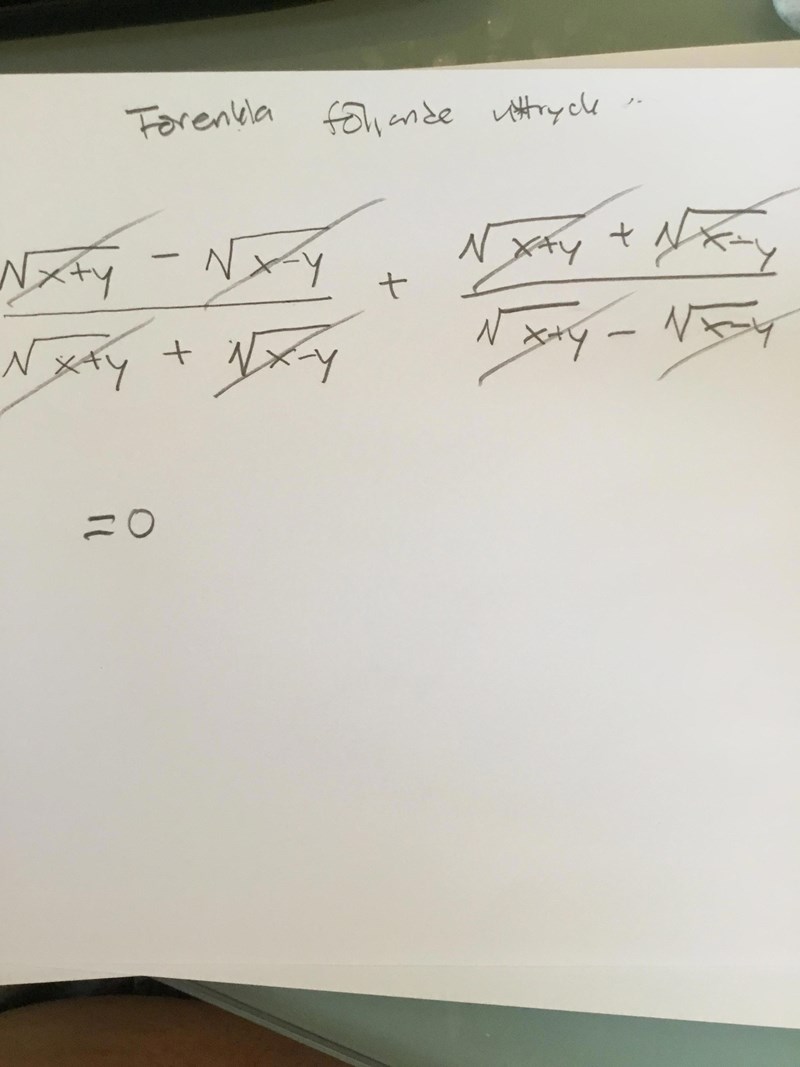 Förenkla följande uttryck :
√x+y − √x−y + √x+y + √x−y
√x+y + √x−y √x+y − √x−y
=0